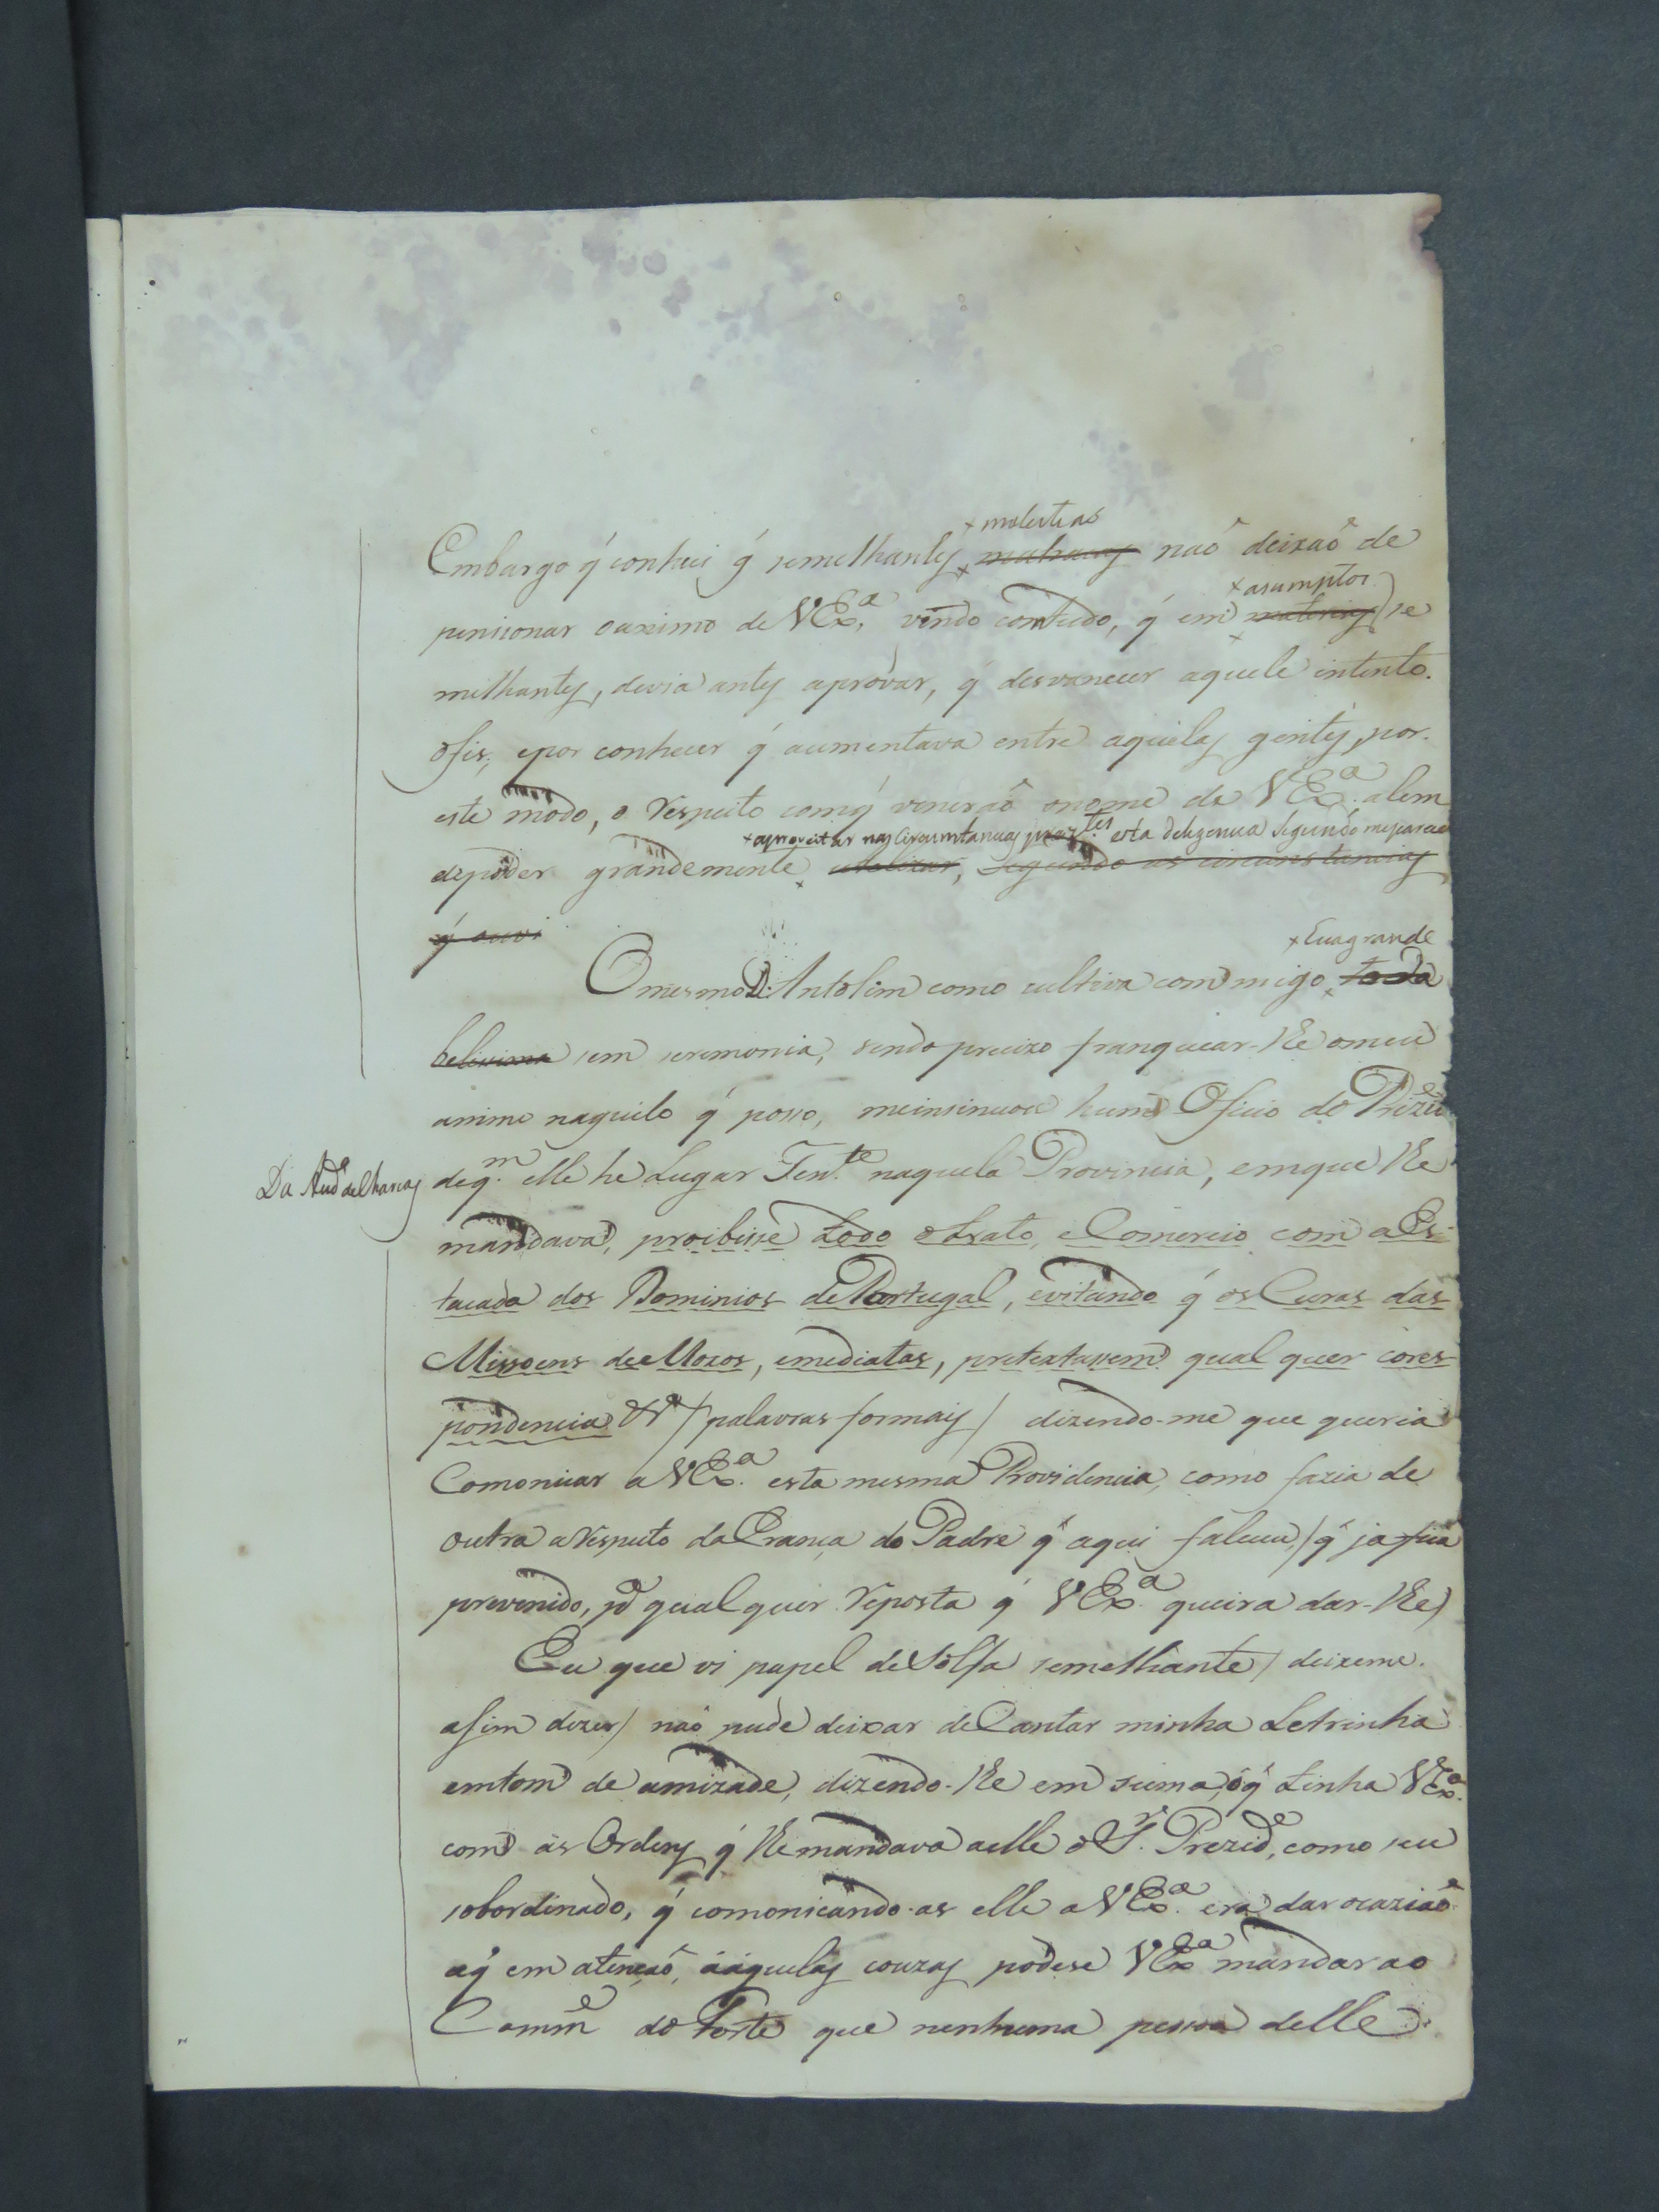 + molestias
Embargo q̃ conheci q̃ semelhantes + naõ deixaõ de
+ asumptos
pencionar o animo de VExª, vendo comtudo, q̃ em + materias se
melhantes, devia antes aprovar, q̃ desvanecer aquele intento.
Ofis, e por conhecer q̃ aumentava entre aquelas gentes, por.
este modo, o respeito com q̃ veneraõ o nome de VExª alem
+ aproveitar nas Circumstancias prez.tes esta deligencia segundo me parece
de poder grandemente + utelizar, segundo as circunstancias
q̃ ouvi
+ Sua grande
O mesmo D. Antolim como cultiva com migo + toda
belixima sem seremonia, sendo precizo franquear-lhe o meu
animo naquilo q̃ posso, me insinuou hum Oficio do Prezid
Da Aud.ª de Charcas
de q.m elle he Lugar Ten.te naquela Provincia, em que lhe
mandava, proibisse todo o trato, e Comercio com a Es-
tacada dos Dominios de Portugal, evitando q̃ os Curas das
Missoens de Moxos, emediatas, pretextassem qual quer cores-
pondencia &ª / palavras formais / dizendo-me que queria
Comonicar a VExª. esta mesma Providencia, como fazia de
outra a respeito da Erança do Padre q̃ aqui faleceu, / q̃ ja fica
prevenido, pª qual quer reposta q̃ VExª. queira dar-lhe /
Eu que vi papel de Solfa semelhante / deixeme.
asim dizer / naõ pude deixar de Cantar minha Letrinha
em tom de amizade, dizendo-lhe em suma, o q̃ tinha VExª.
com as Ordens q̃ lhe mandava a elle o S.r Prezid.e, como seu
sobordinado, q̃ comonicando-as elle a VExª. era dar ocaziaõ
a q̃ em atençaõ, áaquelas couzas podese VExª mandar ao
Comm.e do Forte que nenhuma pessoa delle.